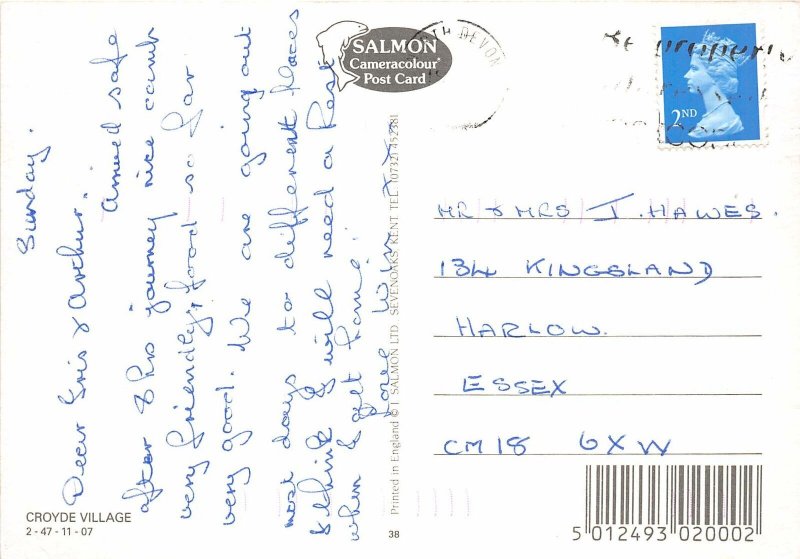 Sunday.
Dear Iris & Arthur.
Arrived safe
after 8 hrs journey nice camb
very friendly, food so far
very good. We are going out
most days to different places
& I think I will need a Rest
when I get home.
love Win xxx
SALMON
Cameracolour
Post Card
TH DEVON
Be properly
2ND
MR & MRS I. HAWES.
134 KINGSLAND
HARLOW.
ESSEX
CM18 6XW
Printed in England © J SALMON LTD SEVENOAKS KENT TEL (0732) 452381
CROYDE VILLAGE
2 - 47 - 11 - 07
38
5 012493 020002